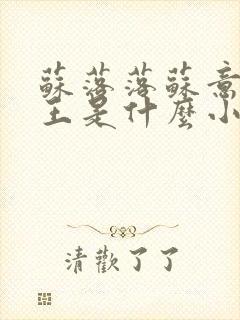 蘇落落蘇意
王是什麼小
清歡了了